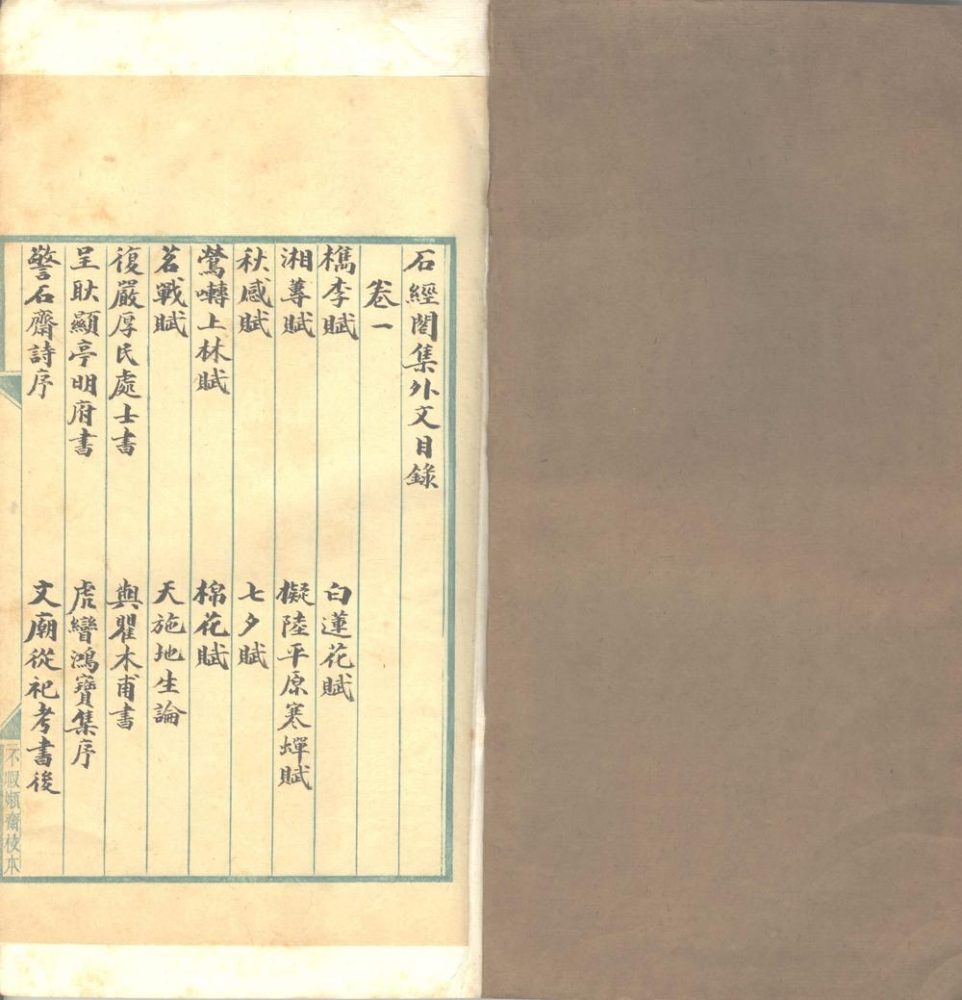 石經閣集外文目錄
卷一
檇李賦　白蓮花賦
湘蓴賦　擬陸平原寒蟬賦
秋感賦　七夕賦
鶯囀上林賦　棉花賦
茗戰賦　天施地生論
復嚴厚民處士書　與瞿木甫書
呈耿顯亭明府書　虎巒鴻寶集序
警石齋詩序　文廟從祀考書後
不暇嬾齋校本